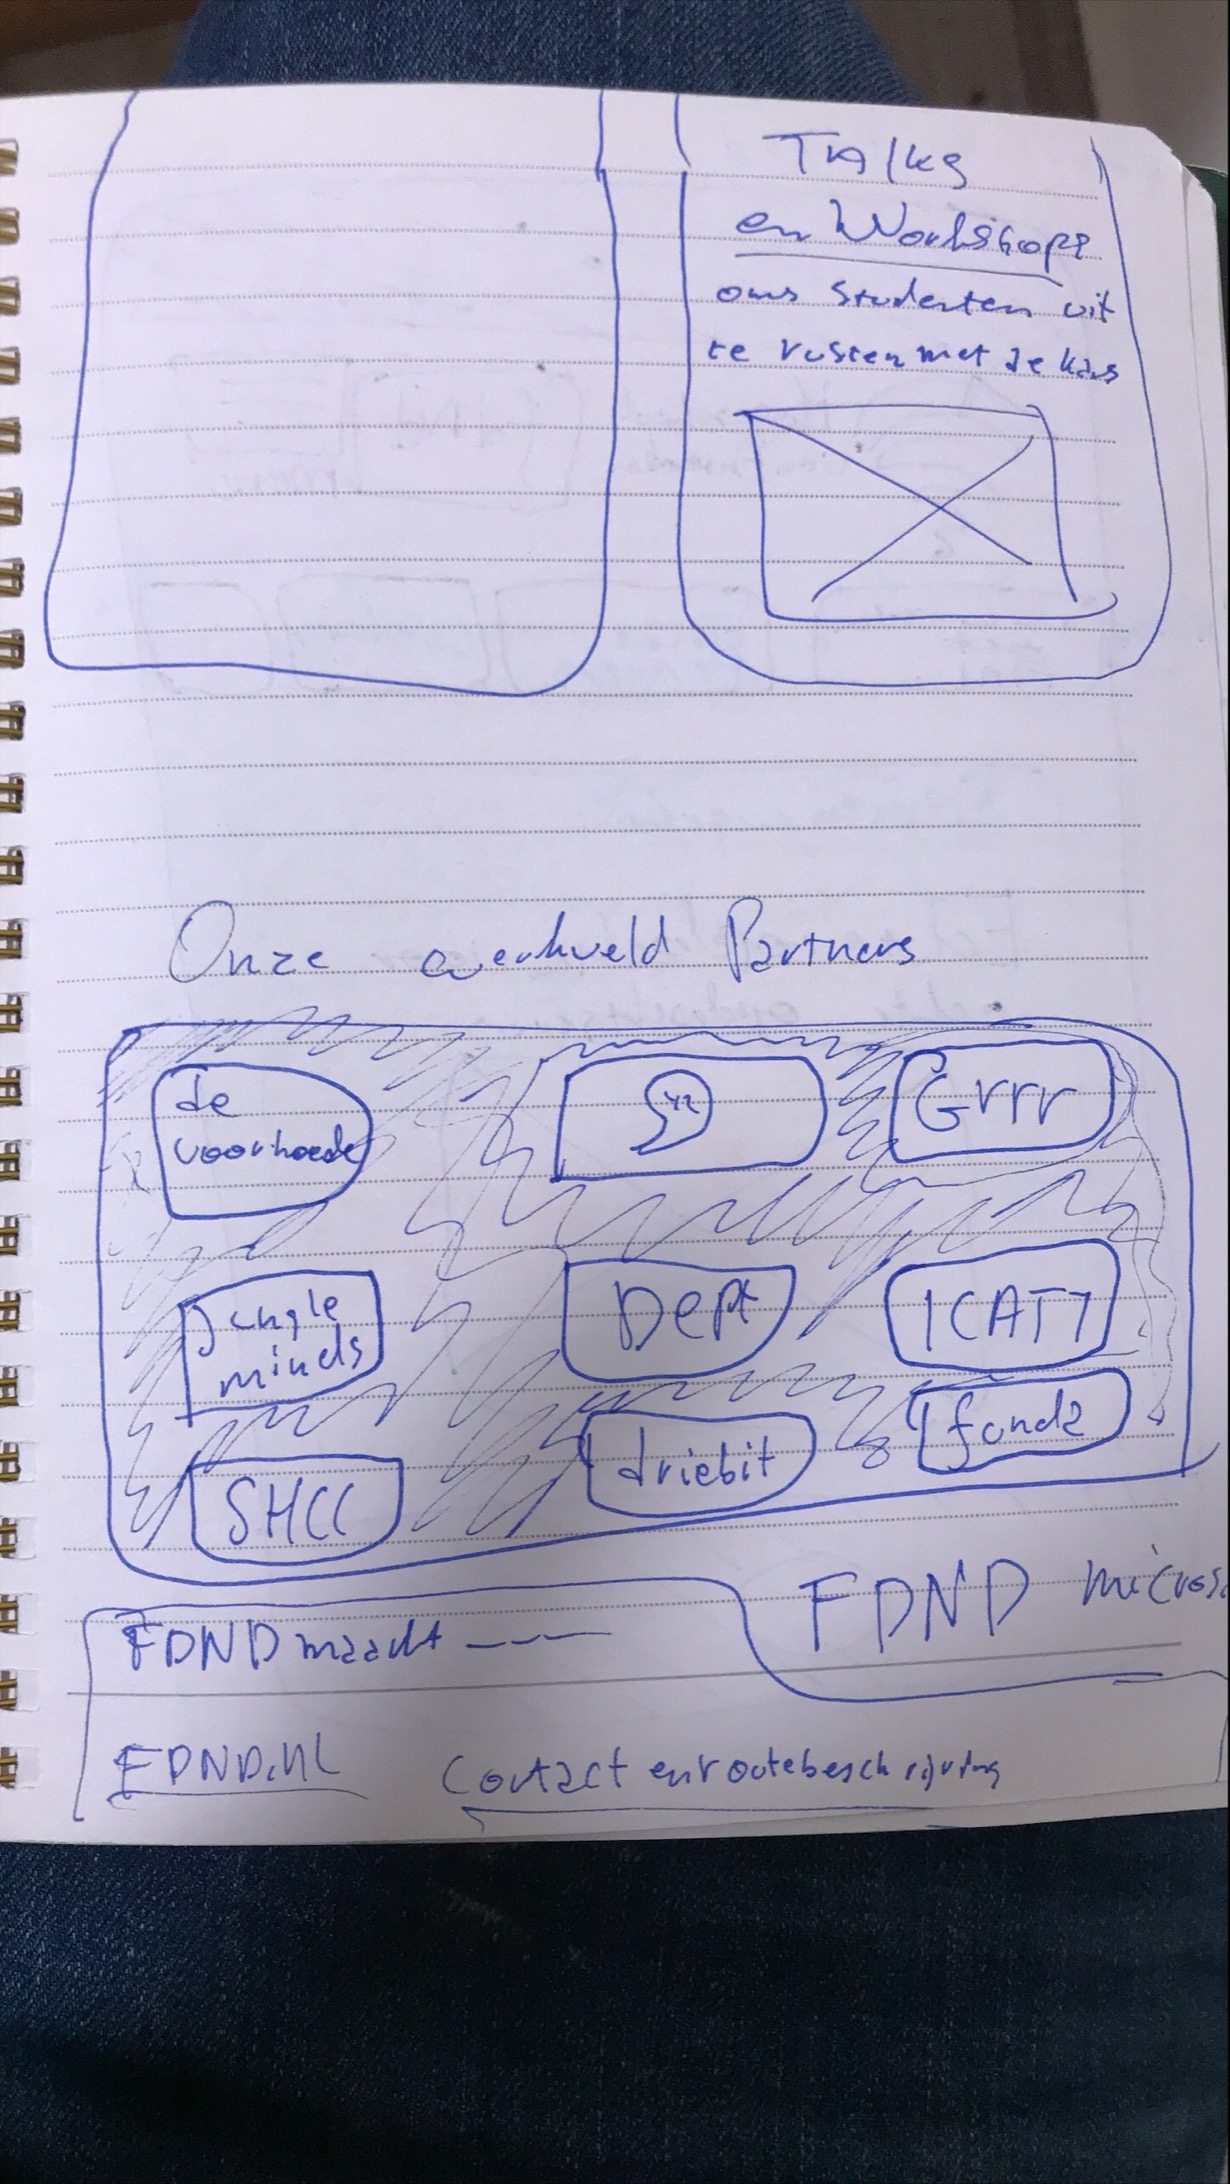 Talks
en Workshops
oms studenten uit
te rusten met de kans
Onze werkveld Partners
de
voorhoede
42
Grrr
Jungle
minds
Dept
ICATT
SHCC
driebit
fonda
FDND maakt ---
FDND micros
FDND.nl
Contact en routebeschrijving